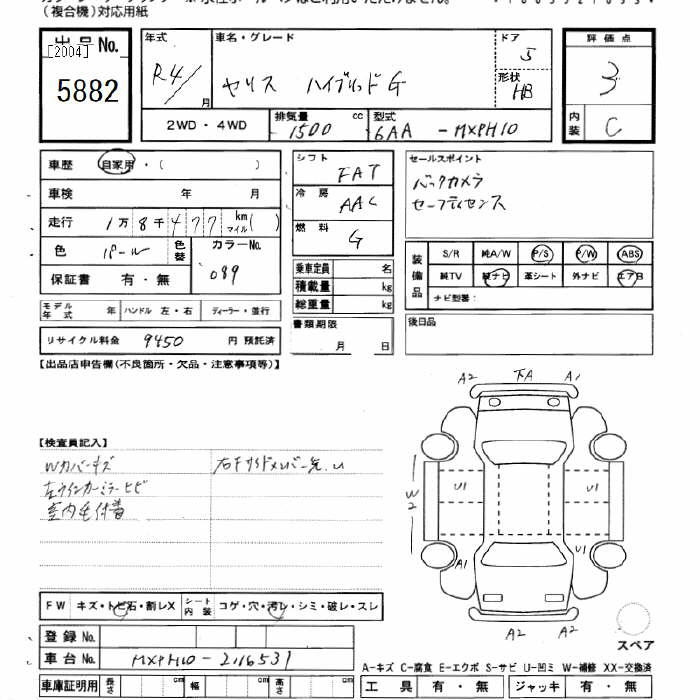 (複合機)対応用紙
出品No.
[2004]
5882
年式
R4/
月
車名・グレード
ヤリス ハイブリッドG
ドア
5
形状
HB
評価点
3
内装
C
2WD・4WD
排気量
cc
1500
型式
6AA - MXPH10
車歴
自家用・( )
車検 年 月
走行 1万8千477 km マイル( )
色 パール
色替
カラーNo.
089
保証書 有・無
シフト
FAT
冷房
AAC
燃料
G
乗車定員 名
積載量 kg
総重量 kg
書類期限
月 日
セールスポイント
バックカメラ
セーフティセンス
装備品
S/R 純A/W P/S P/W ABS
純TV 純ナビ 革シート 外ナビ エアB
ナビ型番:
後日品
モデル年式 年 ハンドル 左・右 ディーラー・並行
リサイクル料金 9450 円 預託済
【出品店申告欄(不良箇所・欠品・注意事項等)】
【検査員記入】
Wカバーキズ
左ウインカーミラーヒビ
室内毛付着
A2 下A A1
W2
U1 U1
A1 U1
A2 A2
スペア
FW キズ・トビ石・割レX
シート内装 コゲ・穴・汚レ・シミ・破レ・スレ
登録No.
車台No. MXPH10-2116531
車庫証明用 長さ cm 幅 cm 高さ cm
A-キズ C-腐食 E-エクボ S-サビ U-凹ミ W-補修 XX-交換済
工具 有・無 ジャッキ 有・無